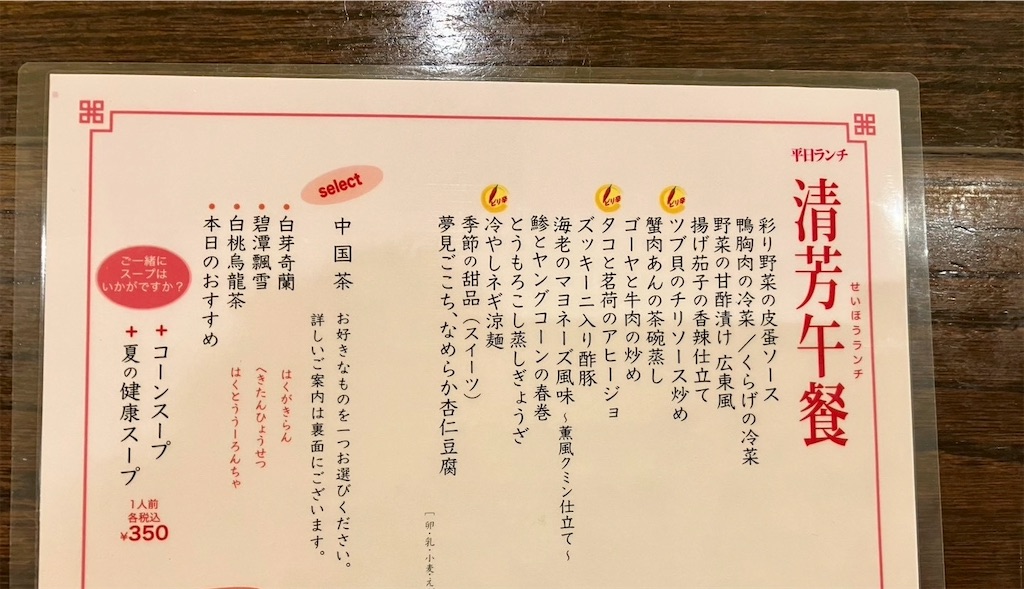 平日ランチ
清芳午餐
せいほうランチ
彩り野菜の皮蛋ソース
鴨胸肉の冷菜／くらげの冷菜
野菜の甘酢漬け 広東風
揚げ茄子の香辣仕立て
ピリ辛
ツブ貝のチリソース炒め
蟹肉あんの茶碗蒸し
ゴーヤと牛肉の炒め
ピリ辛
タコと茗荷のアヒージョ
ズッキーニ入り酢豚
海老のマヨネーズ風味 ～薫風クミン仕立て～
鯵とヤングコーンの春巻
とうもろこし蒸しぎょうざ
ピリ辛
冷やしネギ涼麺
季節の甜品（スイーツ）
夢見ごこち、なめらか杏仁豆腐
［卵・乳・小麦・え
select
中国茶
お好きなものを一つお選びください。
詳しいご案内は裏面にございます。
•白芽奇蘭 はくがきらん
•碧潭飄雪 へきたんひょうせつ
•白桃烏龍茶 はくとううーろんちゃ
•本日のおすすめ
ご一緒に
スープは
いかがですか？
+コーンスープ
+夏の健康スープ
1人前
各税込
¥350